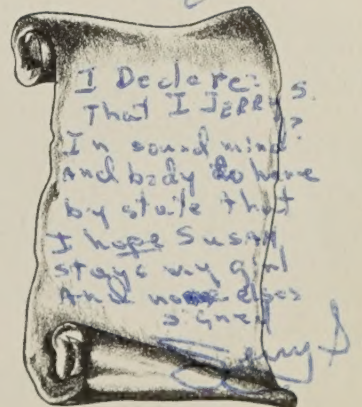 I Declare:
That I JERRY S.
In sound mind?
And body Do have
by state that
I hope Susan
stays my girl
And no elses
signed
Jerry S